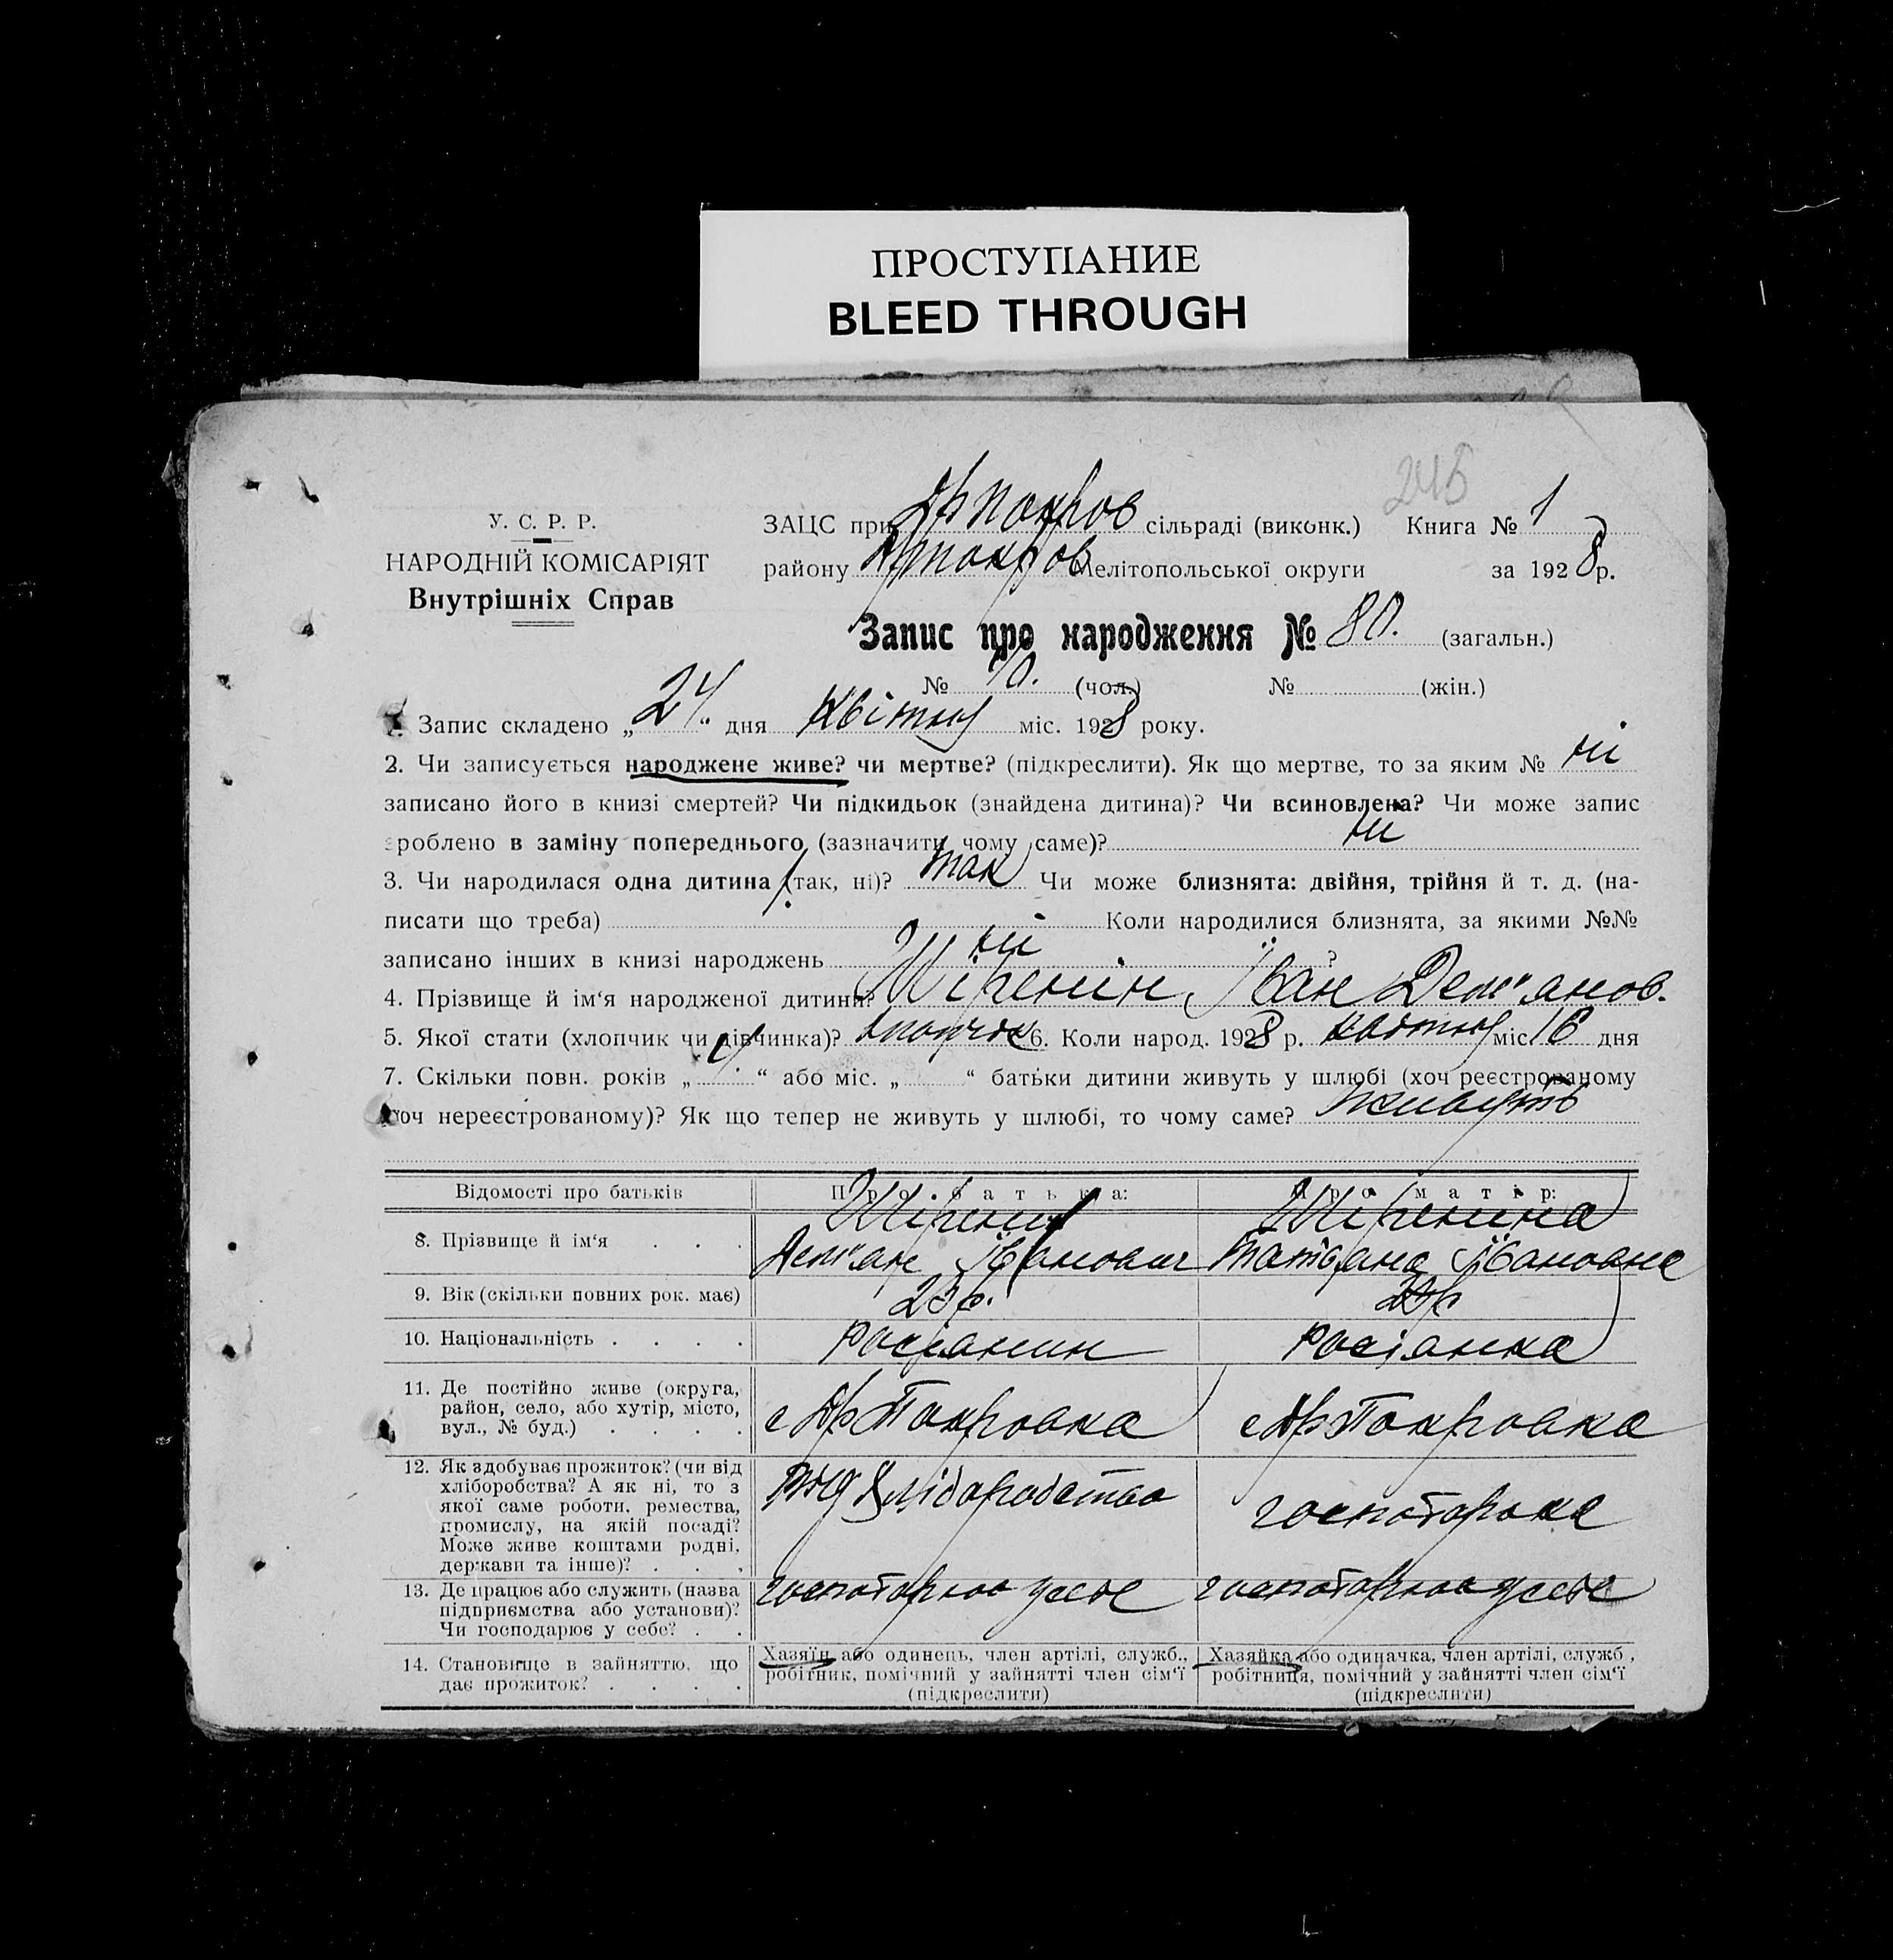 ПРОСТУПАНИЕ
BLEED THROUGH
245
У. С. Р. Р.
НАРОДНІЙ КОМІСАРІЯТ
Внутрішніх Справ
ЗАЦС при Ярпокров сільраді (виконк.) Книга № 1
району Мелітопольської округи за 1928 р.
Запис про народження № 80. (загальн.)
№ 40. (чол.) № (жін.)
1. Запис складено „24“ дня Квітня міс. 1928 року.
2. Чи записується народжене живе? чи мертве? (підкреслити). Як що мертве, то за яким № ні
записано його в книзі смертей? Чи підкидьок (знайдена дитина)? Чи всиновлена? Чи може запис
зроблено в заміну попереднього (зазначити чому саме)? ні
3. Чи народилася одна дитина (так, ні)? так Чи може близнята: двійня, трійня й т. д. (на-
писати що треба) Коли народилися близнята, за якими №№
записано інших в книзі народжень ні ?
4. Прізвище й ім‘я народженої дитини? Шіренін, Іван Дем"янов.
5. Якої стати (хлопчик чи дівчинка)? хлопчік 6. Коли народ. 1928 р. квітня міс. 16 дня
7. Скільки повн. років „4.“ або міс. „ “ батьки дитини живуть у шлюбі (хоч реєстрованому
хоч нереєстрованому)? Як що тепер не живуть у шлюбі, то чому саме? живуть
Відомості про батьків Про батька: Про матір:
8. Прізвище й ім‘я . . . Шіренин Шіренина
Дем"ян Іванович Татьяна Івановна
9. Вік (скільки повних рок. має) 23 р.
10. Національність . . . . Росіянин Росіянка
11. Де постійно живе (округа,
район, село, або хутір, місто,
вул., № буд.) . . . . с Яр Покровка с Яр Покровка
12. Як здобуває прожиток? (чи від
хліборобства? А як ні, то з
якої саме роботи, ремества,
промислу, на якій посаді?
Може живе коштами родні,
держави та інше)? . . . від Хліборобство господарка
13. Де працює або служить (назва
підприємства або установи)?
Чи господарює у себе? . .
14. Становище в зайняттю, що
дає прожиток? . . . .
Хазяїн або одинець, член артілі, служб.,
робітник, помічний у зайнятті член сім‘ї
(підкреслити)
Хазяйка або одиначка, член артілі, служб.,
робітниця, помічний у зайнятті член сім‘ї
(підкреслити)